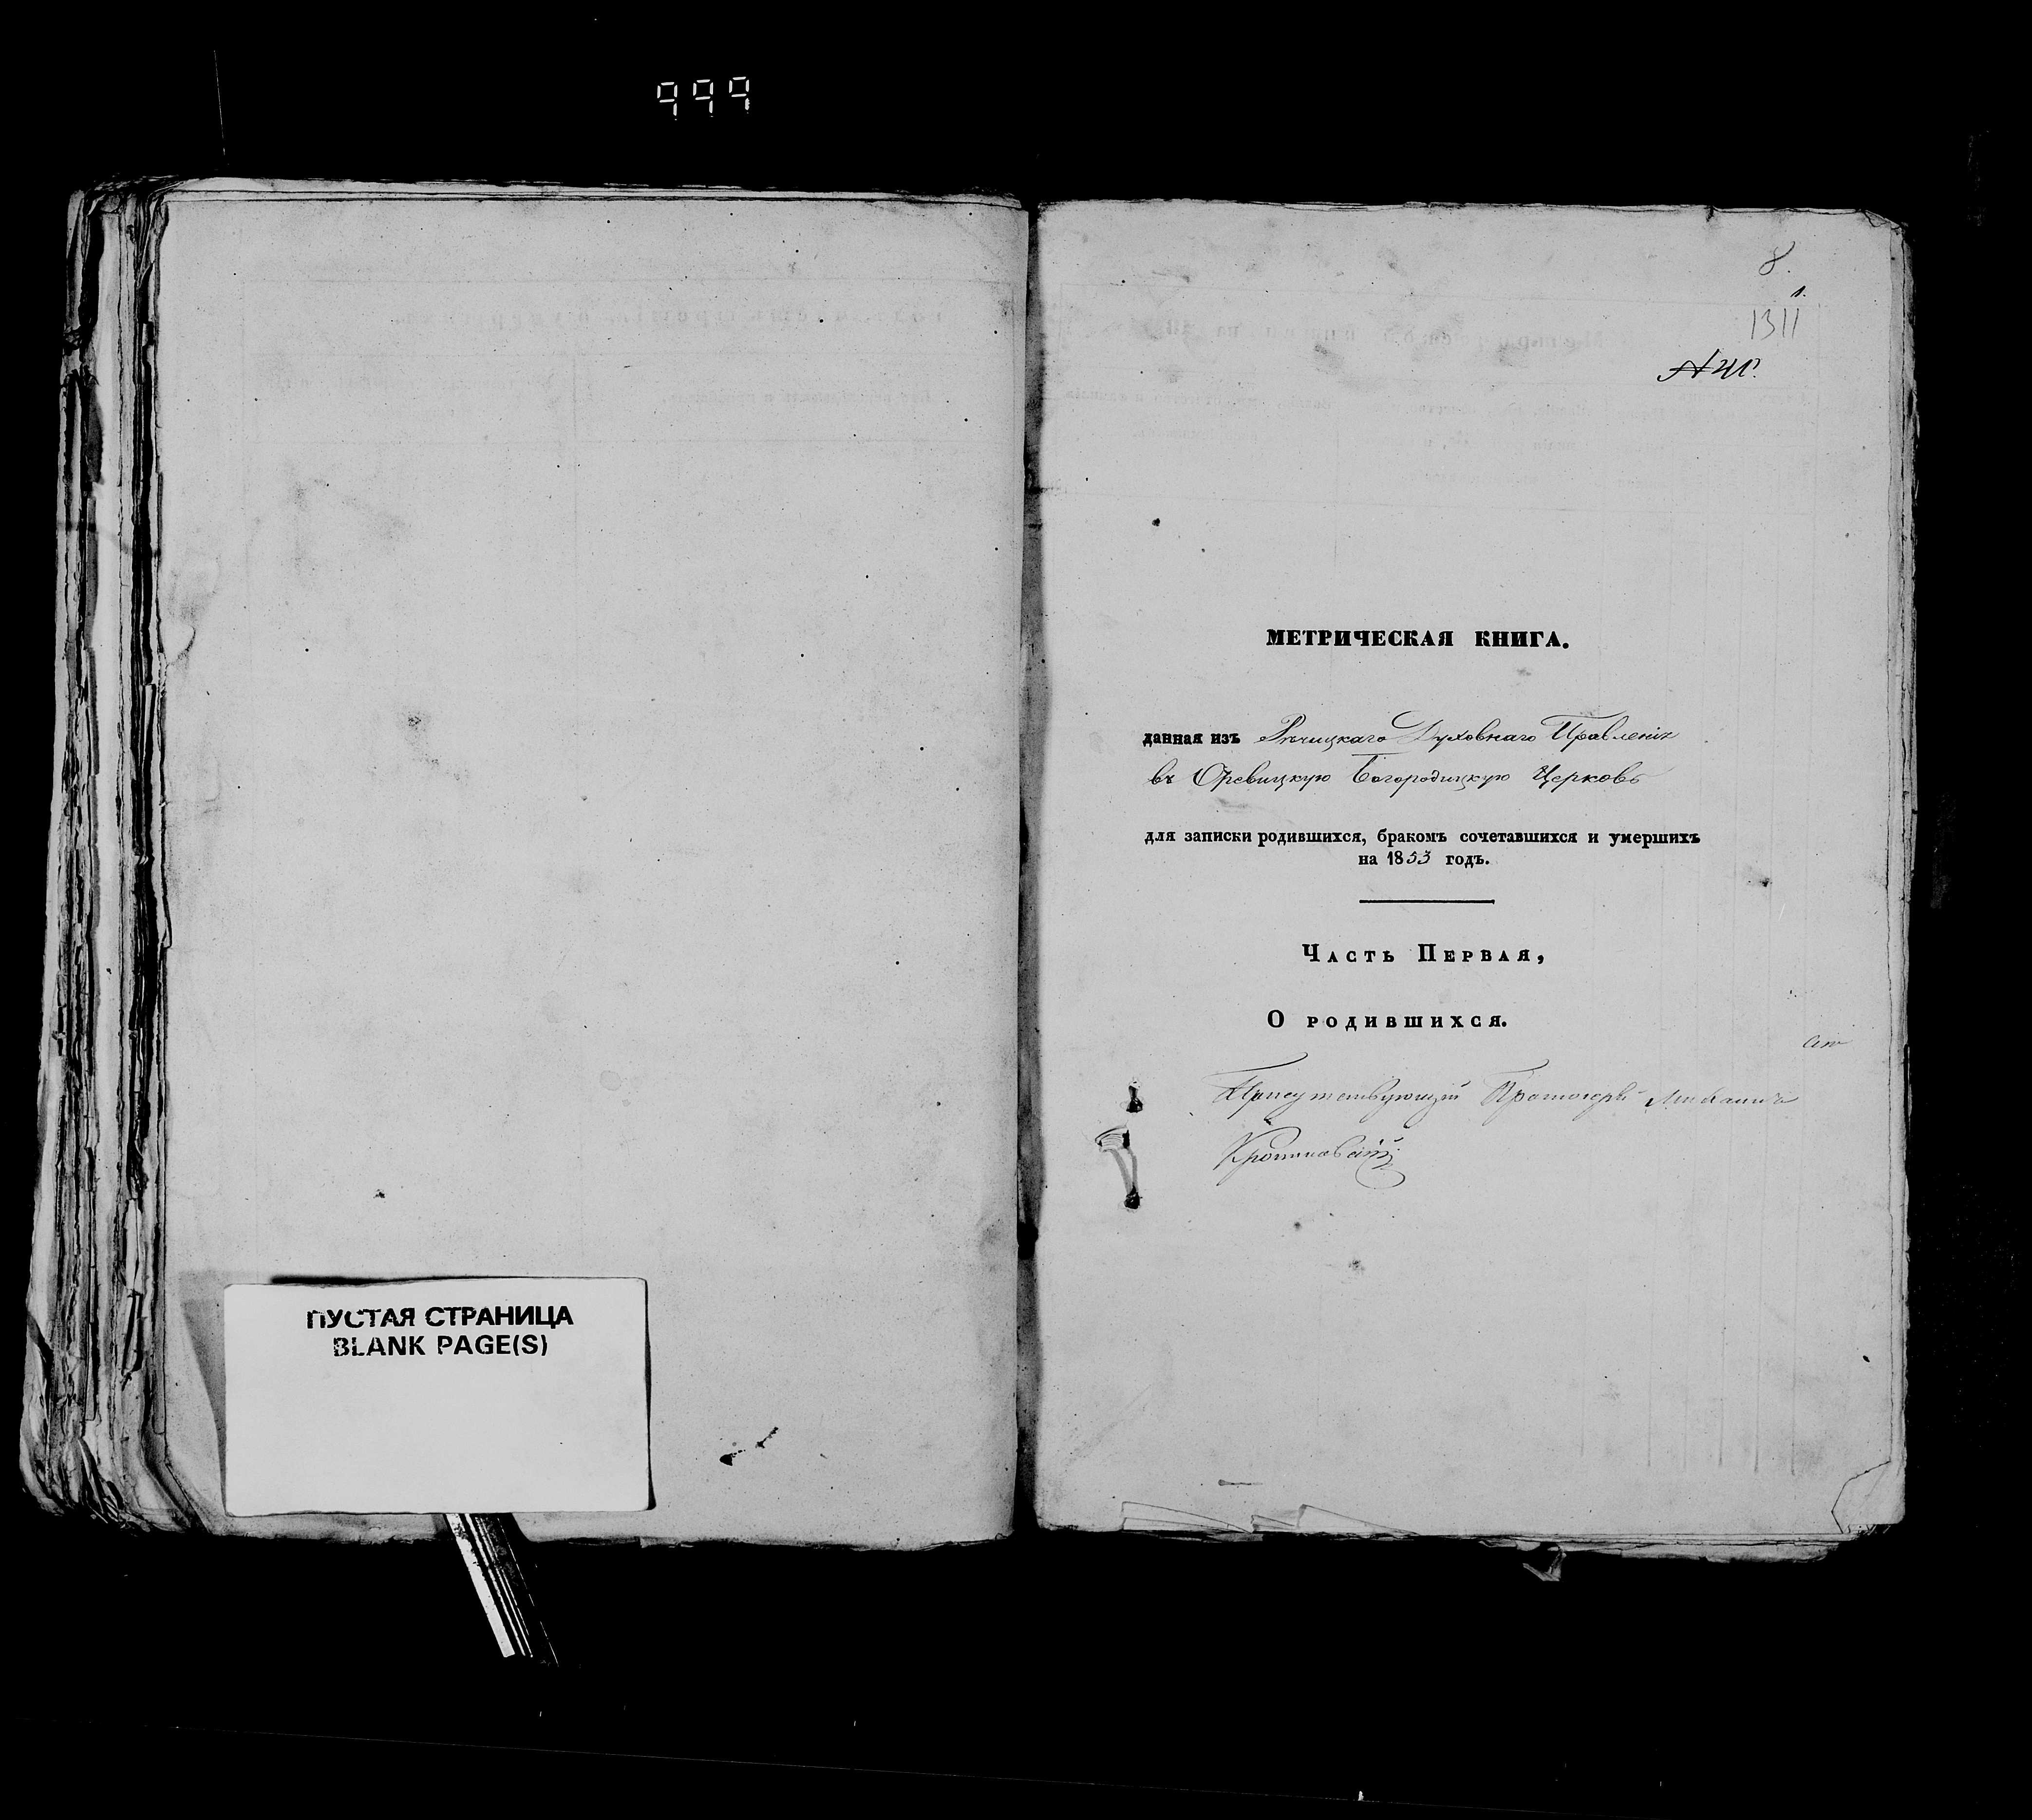 999
ПУСТАЯ СТРАНИЦА
BLANK PAGE(S)
8.
1.
1311
МЕТРИЧЕСКАЯ КНИГА.
данная изъ Рѣчицкаго Духовнаго Правленія
въ Оревицкую Богородицкую Церковь
для записки родившихся, бракомъ сочетавшихся и умершихъ
на 1853 годъ.
Часть Первая,
О родившихся.
Присутствующій Протоіерей